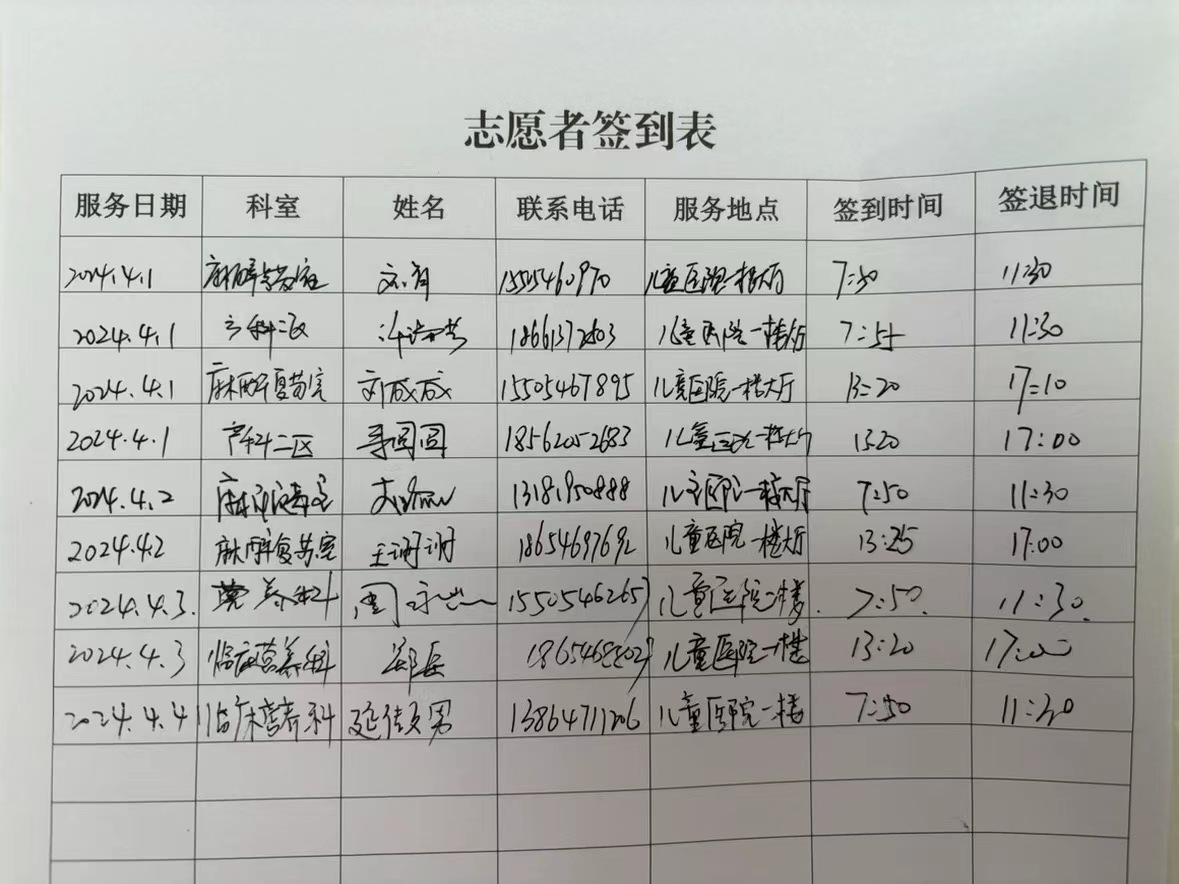 志愿者签到表
服务日期 科室 姓名 联系电话 服务地点 签到时间 签退时间
2024.4.1 麻醉复苏室 儿童医院一楼大厅 7:50 11:30
2024.4.1 儿童医院一楼大厅 7:55 11:30
2024.4.1 麻醉复苏室 刘成成 15505467895 儿童医院一楼大厅 13:20 17:10
2024.4.1 产科二区 18562052683 儿童医院一楼大厅 1320 17:00
2024.4.2 麻醉复苏室 13181950888 儿童医院一楼大厅 7:50 11:30
2024.4.2 麻醉复苏室 王谢谢 18654697692 儿童医院一楼大厅 13:25 17:00
2024.4.3. 营养科 15505462657 儿童医院一楼. 7:50. 11:30.
2024.4.3 临床营养科 儿童医院一楼 13:20 17:00
2024.4.4 临床营养科 延倩男 13864711206 儿童医院一楼 7:50 11:30